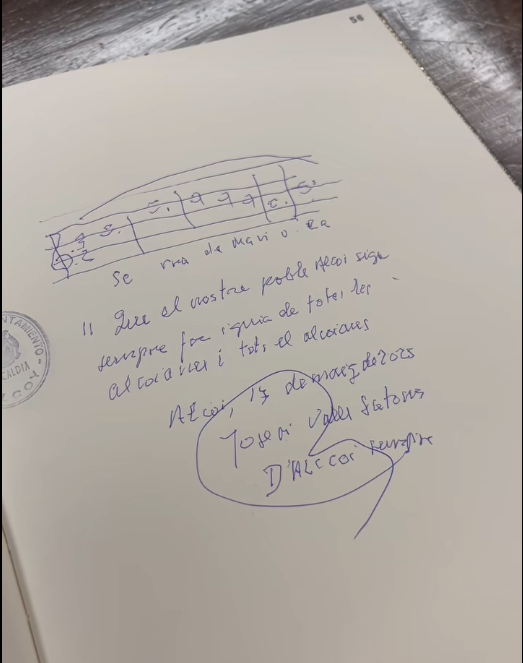 56
Se rra de Mari o la
" Que el nostre poble Alcoi siga
sempre font i guia de totes les
alcoianes i tots el alcoians
Alcoi, 17 de març de 2025
Josep Valls Satorres
D'Alcoi sempre
AYUNTAMIENTO
ALCALDIA
ALCOY